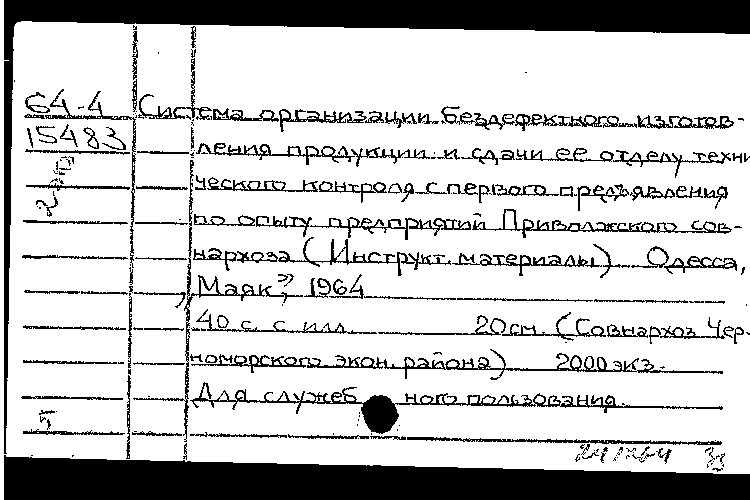 64-4 Система организации бездефектного изготов-
15483 ления продукции и сдачи ее отделу техни
ческого контроля с первого предъявления
по опыту предприятий Приволжского сов-
нархоза (Инструкт. материалы) Одесса,
„Маяк”, 1964
40 с. с илл. 20 см. (Совнархоз Чер-
номорского экон. района) 2000 экз.
Для служебного пользования.
5